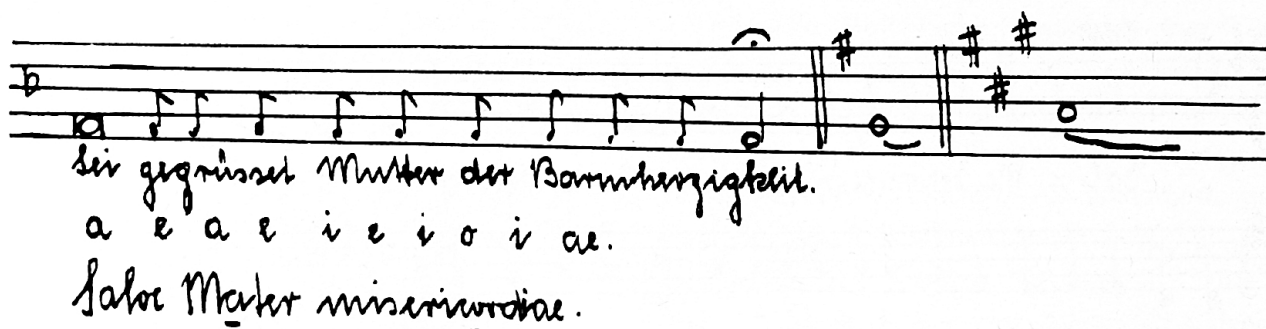 Sei gegrüsset Mutter der Barmherzigkeit.
a e a e i e i o i ae.
Salve Mater misericordiae.